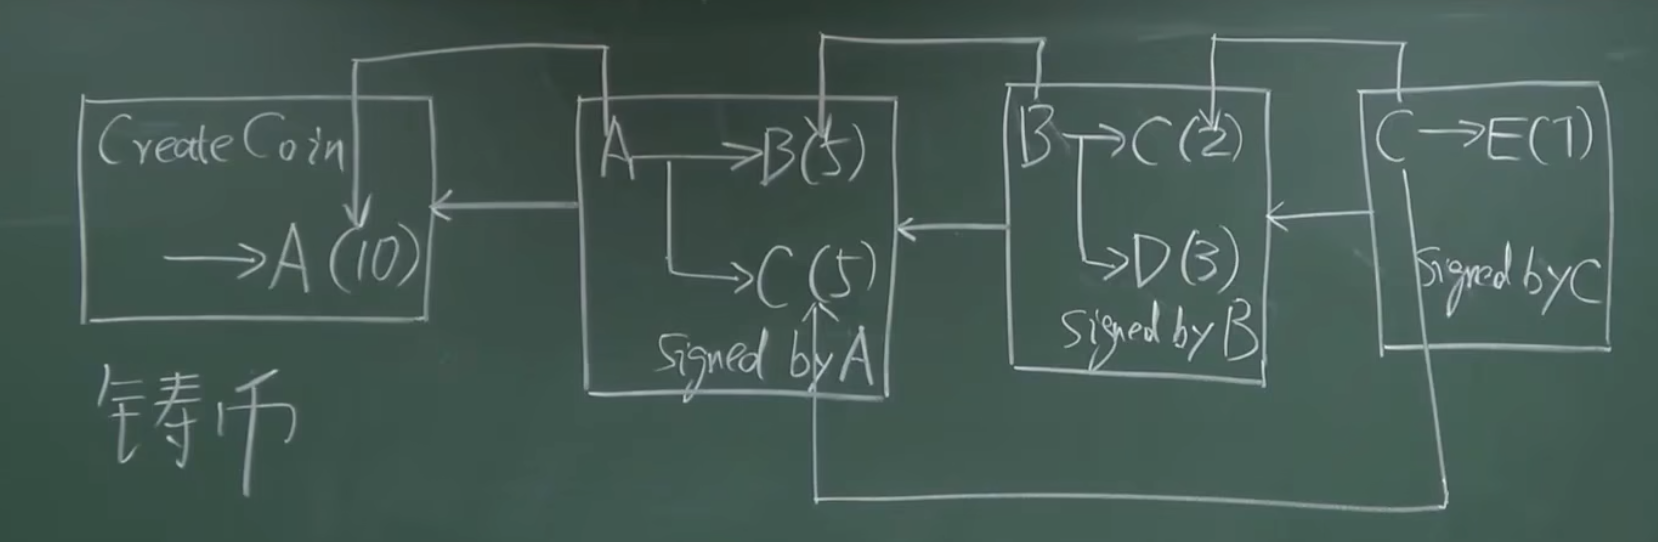 CreateCoin
→A(10)
铸币
A→B(5)
→C(5)
Signed by A
B→C(2)
→D(3)
Signed by B
C→E(7)
Signed by C